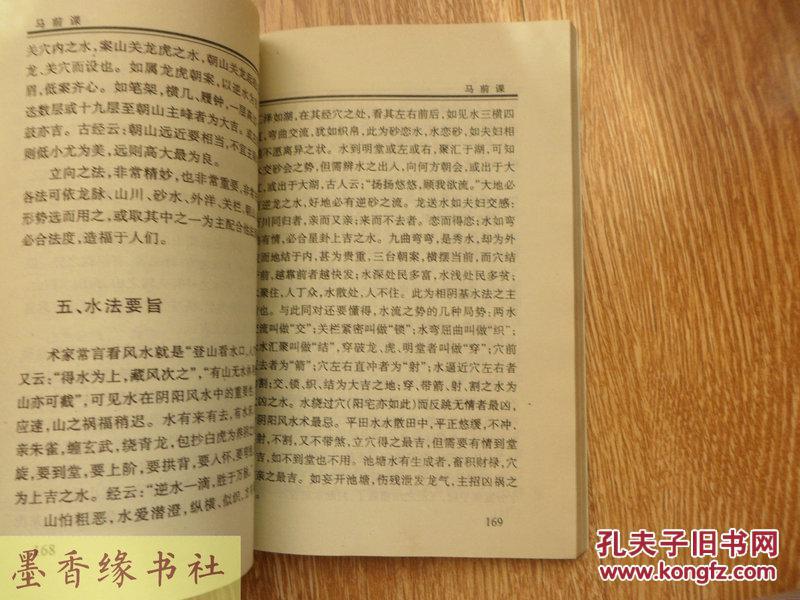 马前课
关穴内之水,案山关龙虎之水,朝山关龙后
龙、关穴而设也。如属龙虎朝案,以逆水
眉,低案齐心。如笔架,横几、履钟,一层
迭数层或十九层至朝山主峰者为大吉。或
敌亦吉。古经云:朝山远近要相当,不宜主
则低小尤为美,远则高大最为良。
立向之法,非常精妙,也非常重要,非常
各法可依龙脉、山川、砂水、外洋、关栏、朝
形势选而用之,或取其中之一为主配合他
必合法度,造福于人们。
五、水法要旨
术家常言看风水就是“登山看水口,入
又云:“得水为上,藏风次之”,“有山无水休
山亦可截”,可见水在阴阳风水中的重要
应速,山之祸福稍迟。水有来有去,有水
亲朱雀,缠玄武,绕青龙,包抄白虎为养
旋,要到堂,要上阶,要拱背,要入怀,要
为上吉之水。经云:“逆水一滴,胜于万派
山怕粗恶,水爱潜澄,纵横、似织、方
168
马前课
汪洋如湖,在其经穴之处,看其左右前后,如见水三横四
,弯曲交流,犹如织帛,此为砂恋水,水恋砂,如夫妇相
不愿离异之状。水到明堂或左或右,聚汇于湖,可知
水交砂会之势,但需辨水之出人,向何方朝会,或出于大
,或出于大湖,古人云;“扬扬悠悠,顾我欲流。”大地必
有逆龙之水,好地必有逆砂之流。龙送水如夫妇交感:
百川同归者,亲而又亲;来而不去者。恋而得恋;水如弯
有情,必合星卦上吉之水。九曲弯弯,是秀水,却为外
而地结于内,甚为贵重,三台朝案,横摆当前,而穴结
于前,越靠前者越快发;水深处民多富,水浅处民多贫;
水聚住,人丁众,水散处,人不住。此为相阴基水法之主
也。与此同对还要懂得,水流之势的几种局势;两水
交流叫做“交”;关栏紧密叫做“锁”;水弯屈曲叫做“织”;
水汇聚叫做“结”,穿破龙、虎、明堂者叫做“穿”;穴前
去者为“箭”;穴左右直冲者为“射”;水逼近穴左右者
割;交、锁、织、结为大吉之地;穿、带箭、射、割之水为
凶之水。水绕过穴(阳宅亦如此)而反跳无情者最凶,
阴阳风水术最忌。平田水水散田中,平正悠缓,不冲,
射,不割,又不带煞,立穴得之最吉,但需要有情到堂
吉,如不到堂也不用。池塘水有生成者,畜积财禄,穴
亲之最吉。如妄开池塘,伤残泄发龙气,主招凶祸之
169
墨香缘书社
孔夫子旧书网
www.kongfz.com